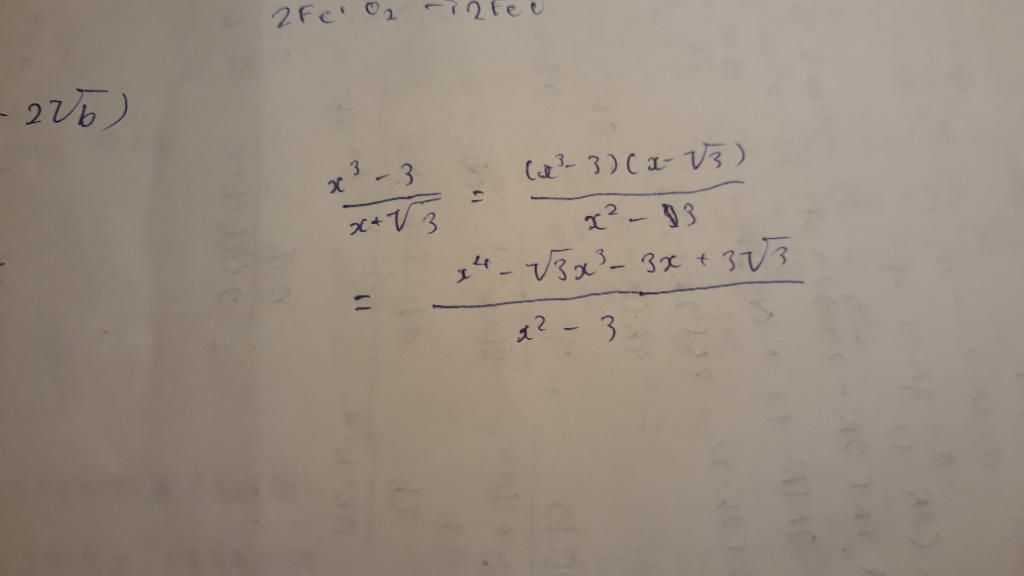 2Fe + O₂ → 2FeO
- 2√b)
(x³ - 3)/(x + √3) = ((x³ - 3)(x - √3))/(x² - 3)
= (x⁴ - √3x³ - 3x + 3√3)/(x² - 3)